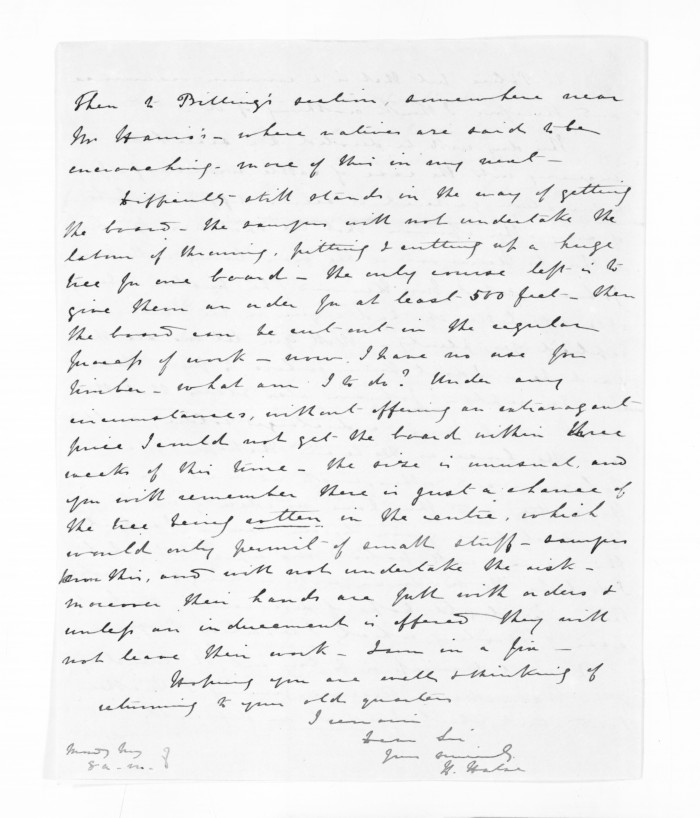 Then to Billing's section, somewhere near
Mr Harris's – where natives are said to be
encroaching – more of this in my next –
Difficulty still stands in the way of getting
the board – the sawyers will not undertake the
labour of throwing, pitting & cutting up a huge
tree for one board – the only course left is to
give them an order for at least 500 feet – then
the board can be cut out in the regular
process of work – now I have no use for
timber – what am I to do? Under any
circumstances, without offering an extravagant
price I could not get the board within three
weeks of this time – the size is unusual, and
you will remember there is just a chance of
the tree being rotten in the centre, which
would only permit of small stuff – sawyers
know this, and will not undertake the risk –
moreover their hands are full with orders &
unless an inducement is offered they will
not leave their work – I am in a fix –
Hoping you are well & thinking of
returning to your old quarters
I remain
Dear Sir
Yours sincerely
H. Halse
8 a.m.